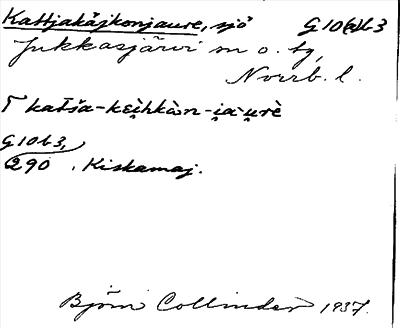 Kattjakåjkonjaure, sjö G10(a)b3
Jukkasjärvi sn o. tg,
Norrb. l.
katša-keihkàn-ja·urè
G10b3,
290 . Kiskamaj.
Björn Collinder 1937.